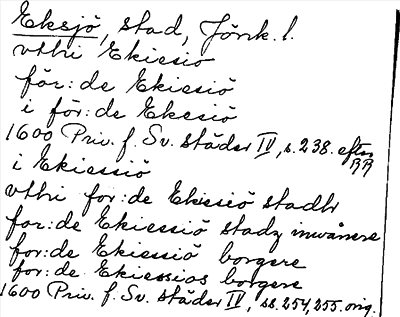 Eksjö, stad, Jönk. l.
vthi Ekiesiö
för:de Ekiesiö
i för:de Ekesiö
1600 Priv. f. Sv. städer IV, s. 238. efter RR
i Ekiessiö
vthi for:de Ekiesiö stadh
for:de Ekiessiö stadz inwånere
for:de Ekiessiö borgere
for:de Ekiessios borgere
1600 Priv. f. Sv. städer IV, ss. 254, 255. orig.